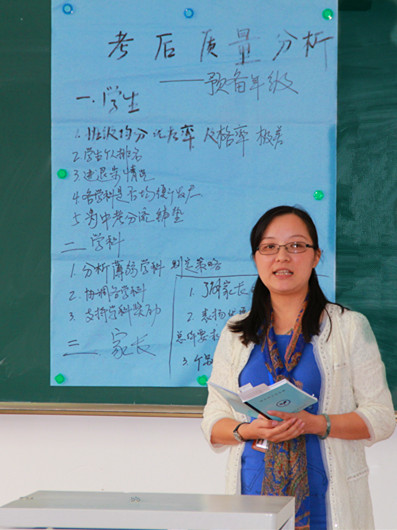 考后质量分析
——预备年级
一.学生
1.班级均分 优秀率 及格率 极差
2.学生个人排名
3.进退步情况
4.各学科是否均衡发展
5.为中考分流铺垫
二.学科
1.分析薄弱学科 制定策略
2.协调各学科
3.支持学科活动
三.家长
1.了解家长
2.表扬
总的要求
3.个别